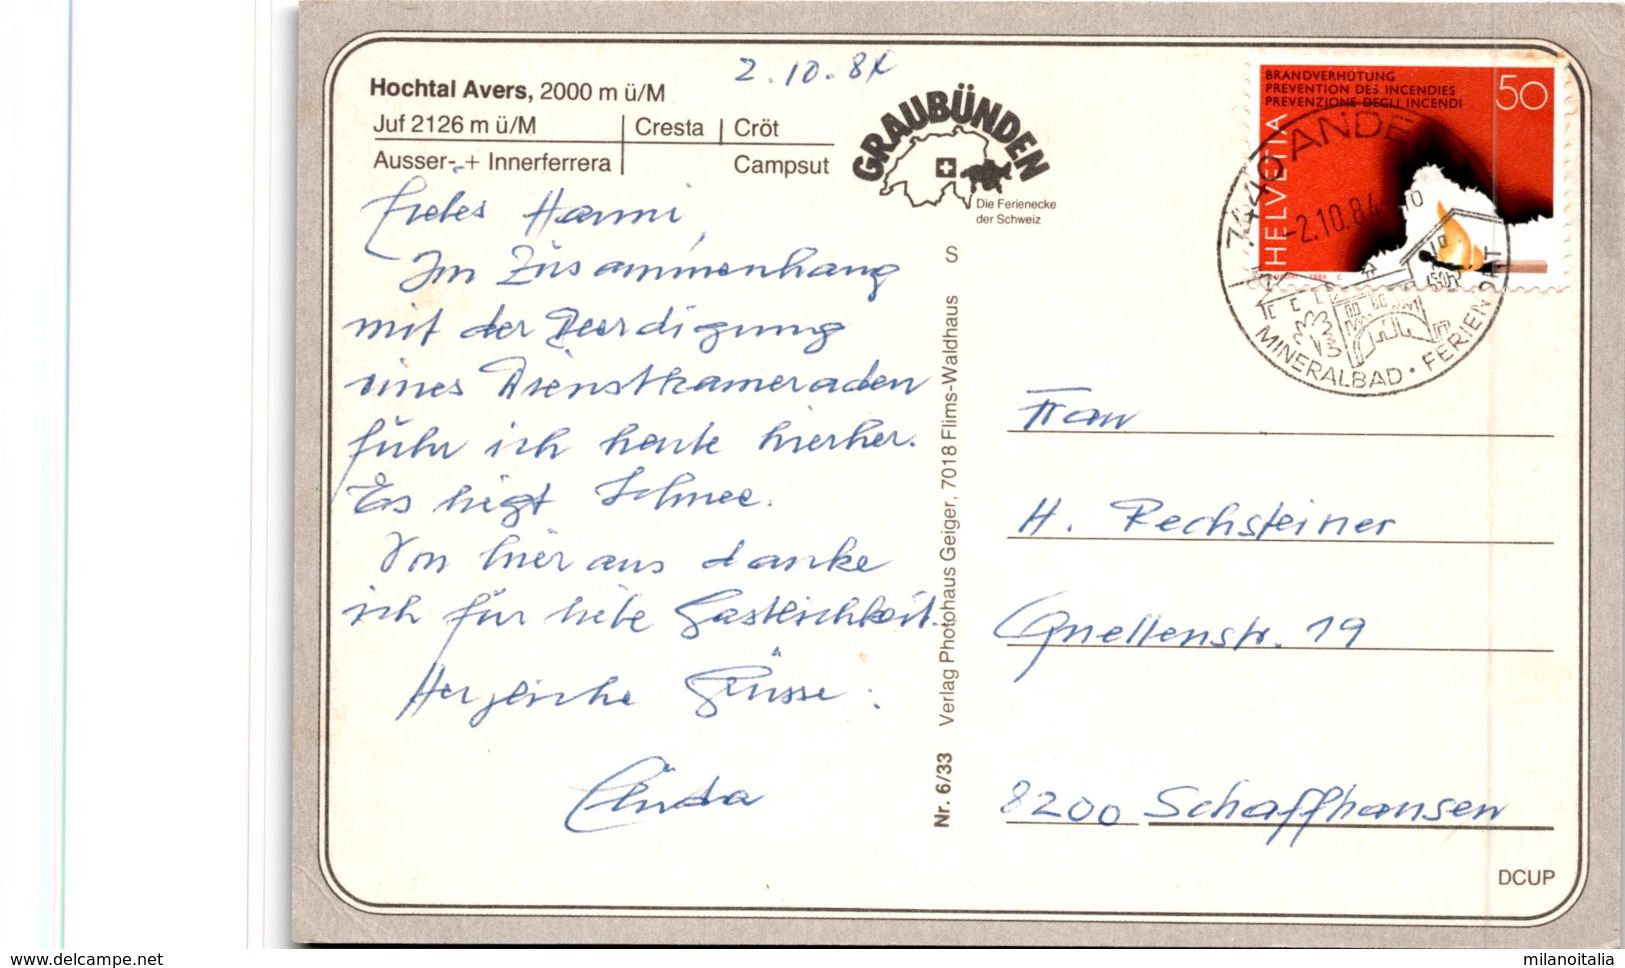 2.10.84
Hochtal Avers, 2000 m ü/M
Juf 2126 m ü/M
Cresta
Cröt
Ausser- + Innerferrera
Campsut
GRAUBÜNDEN
Die Ferienecke
der Schweiz
Liebes Hanni,
Im Zusammenhang
mit der Beerdigung
eines Dienstkameraden
fuhr ich heute hierher.
Es liegt Schnee.
Von hier aus danke
ich für liebe Gastlichkeit.
Herzliche Grüsse:
S
Verlag Photohaus Geiger, 7018 Flims-Waldhaus
Nr. 6/33
BRANDVERHÜTUNG
PREVENTION DES INCENDIES
PREVENZIONE DEGLI INCENDI
50
HELVETIA
7440 ANDE
-2.10.84-10
MINERALBAD · FERIEN
Frau
H. Rechsteiner
Quellenstr. 19
8200 Schaffhausen
DCUP
www.delcampe.net
milanoitalia